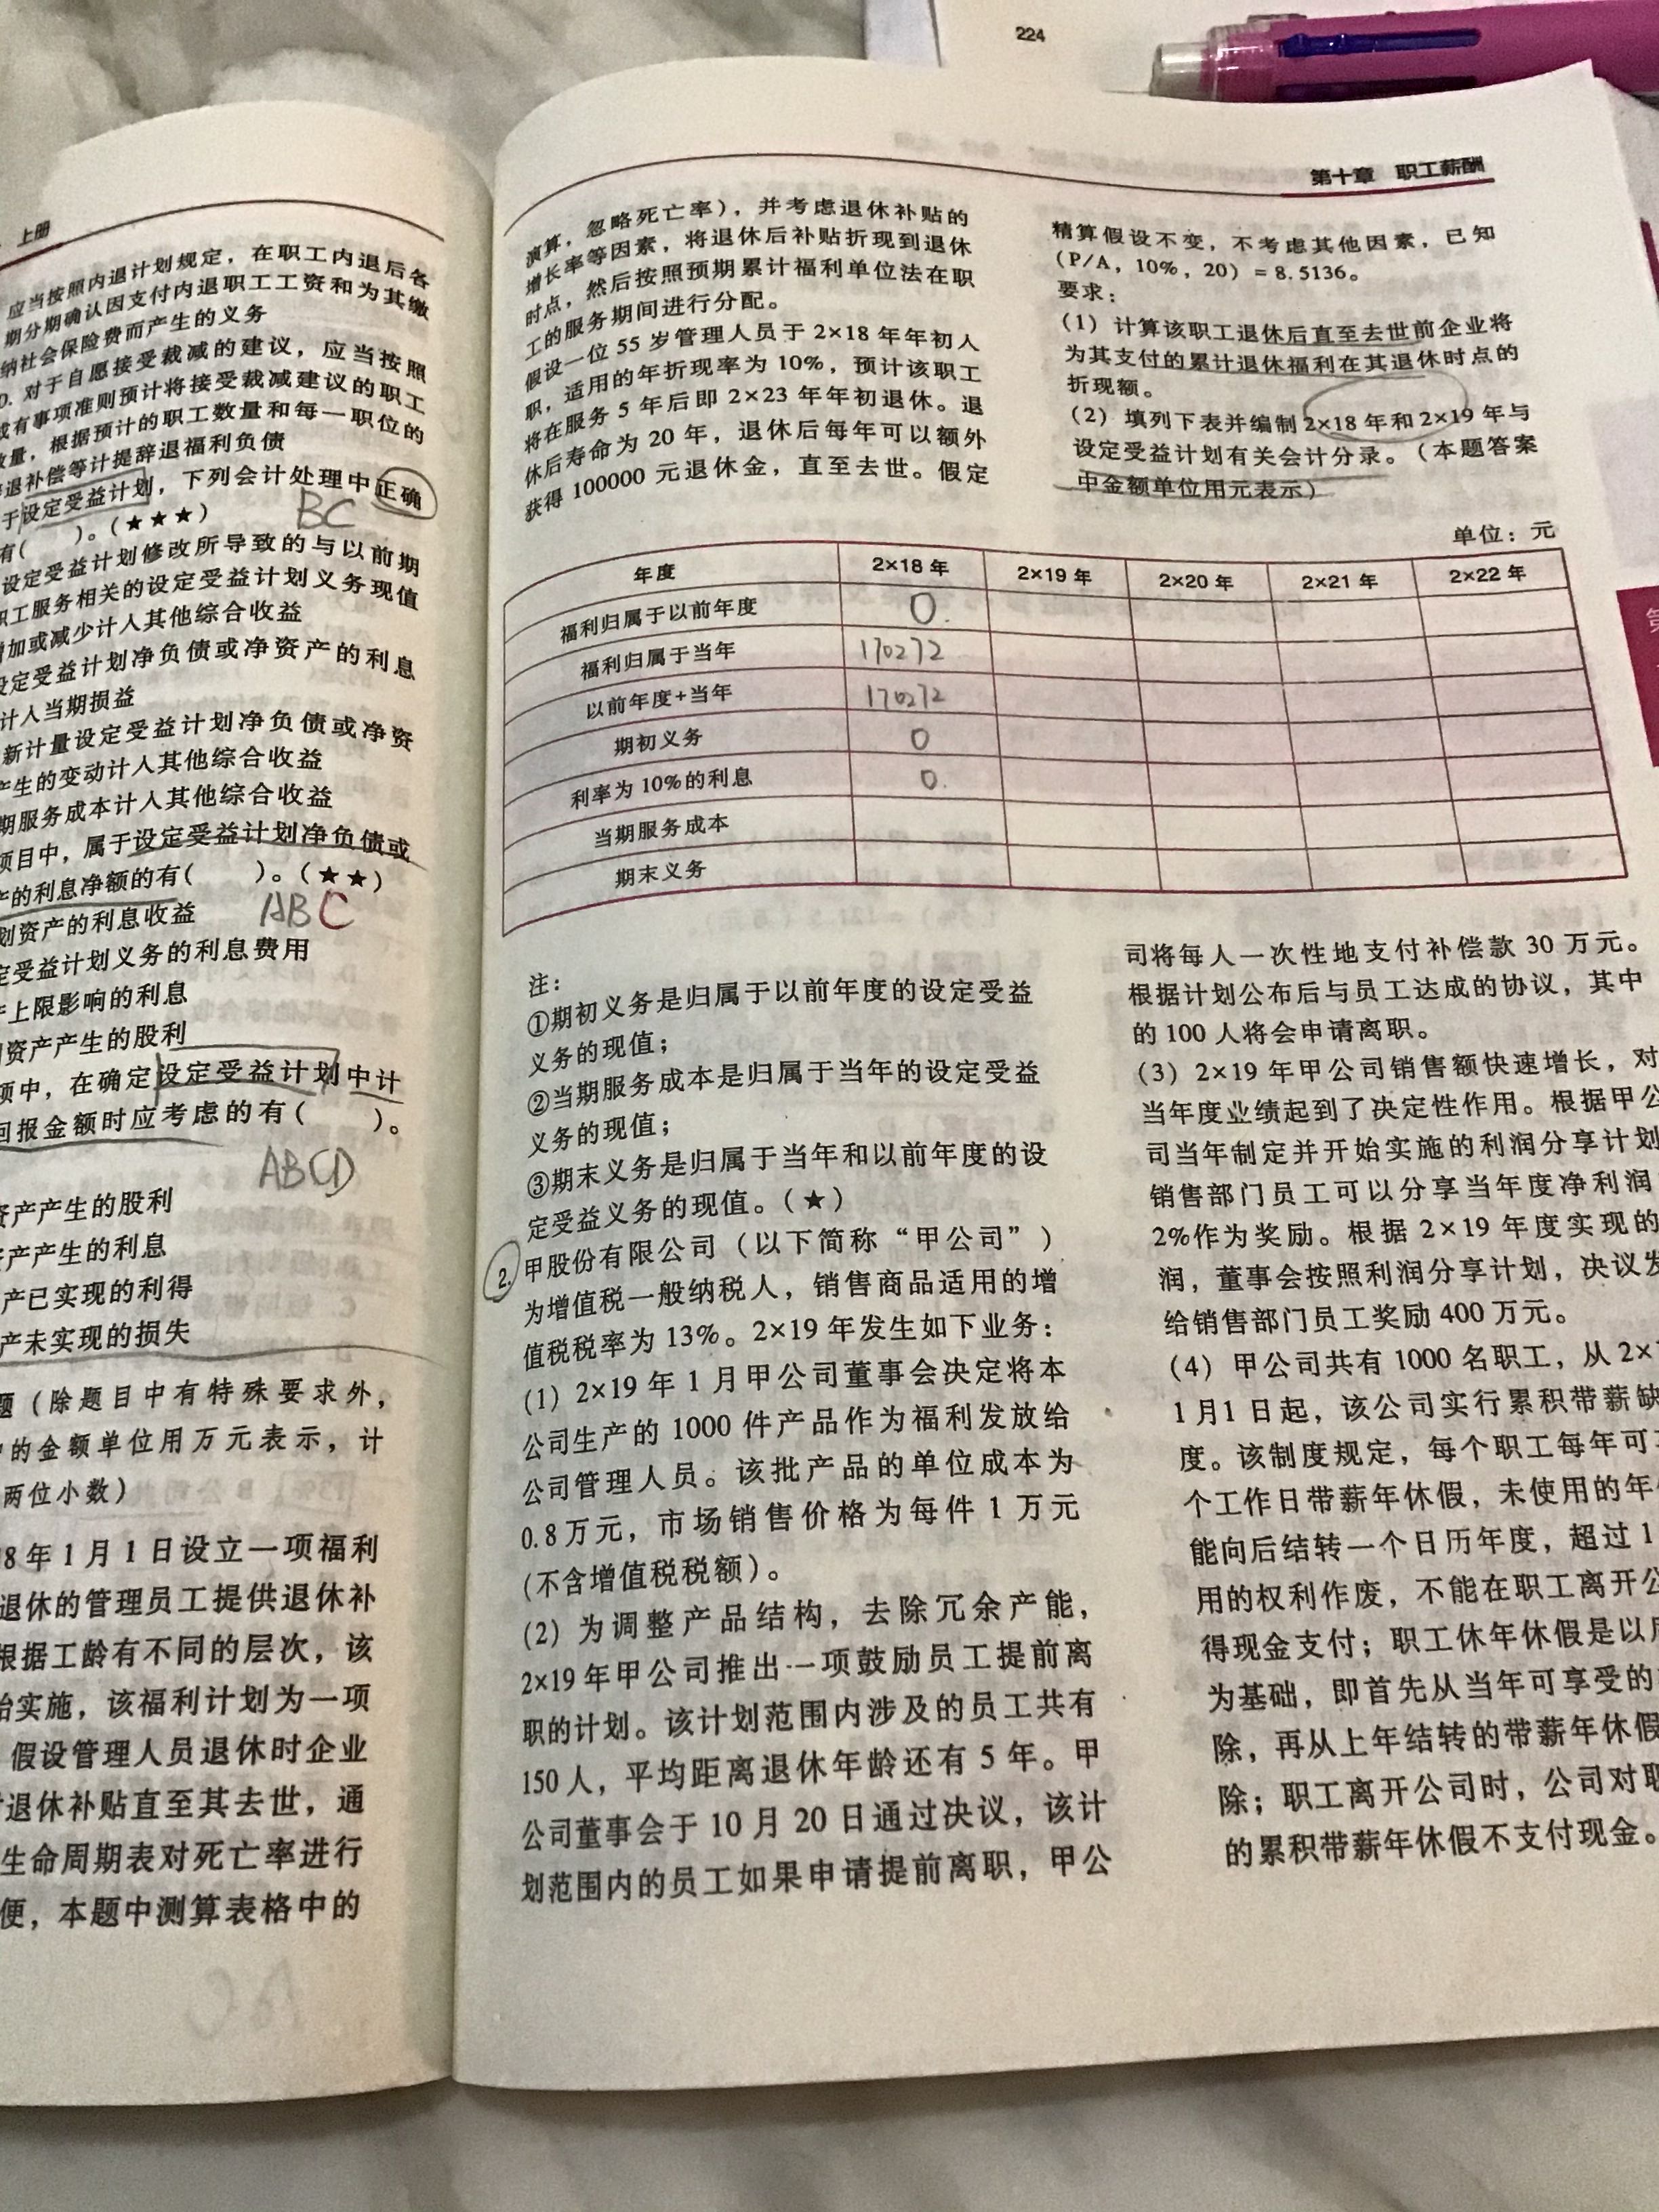 224
上册
应当按照内退计划规定，在职工内退后各
期分期确认因支付内退职工工资和为其缴
纳社会保险费而产生的义务
D. 对于自愿接受裁减的建议，应当按照
或有事项准则预计将接受裁减建议的职工
数量，根据预计的职工数量和每一职位的
辞退补偿等计提辞退福利负债
于设定受益计划，下列会计处理中正确
有(　　)。(★★★)
BC
设定受益计划修改所导致的与以前期
职工服务相关的设定受益计划义务现值
增加或减少计入其他综合收益
设定受益计划净负债或净资产的利息
计入当期损益
新计量设定受益计划净负债或净资
产生的变动计入其他综合收益
期服务成本计入其他综合收益
项目中，属于设定受益计划净负债或
产的利息净额的有(　　)。(★★)
ABC
划资产的利息收益
定受益计划义务的利息费用
产上限影响的利息
资产产生的股利
项中，在确定设定受益计划中计
回报金额时应考虑的有(　　)。
ABCD
资产产生的股利
资产产生的利息
产已实现的利得
产未实现的损失
题（除题目中有特殊要求外，
中的金额单位用万元表示，计
两位小数）
8年1月1日设立一项福利
退休的管理员工提供退休补
根据工龄有不同的层次，该
始实施，该福利计划为一项
假设管理人员退休时企业
退休补贴直至其去世，通
生命周期表对死亡率进行
便，本题中测算表格中的
第十章　职工薪酬
演算，忽略死亡率），并考虑退休补贴的
增长率等因素，将退休后补贴折现到退休
时点，然后按照预期累计福利单位法在职
工的服务期间进行分配。
假设一位 55 岁管理人员于 2×18 年年初入
职，适用的年折现率为 10%，预计该职工
将在服务 5 年后即 2×23 年年初退休。退
休后寿命为 20 年，退休后每年可以额外
获得 100000 元退休金，直至去世。假定
精算假设不变，不考虑其他因素，已知
(P/A，10%，20) = 8.5136。
要求：
(1) 计算该职工退休后直至去世前企业将
为其支付的累计退休福利在其退休时点的
折现额。
(2) 填列下表并编制 2×18 年和 2×19 年与
设定受益计划有关会计分录。（本题答案
中金额单位用元表示）
单位：元
年度 2×18 年 2×19 年 2×20 年 2×21 年 2×22 年
福利归属于以前年度 0.
福利归属于当年 170272
以前年度+当年 170272
期初义务 0
利率为 10%的利息 0.
当期服务成本
期末义务
注：
①期初义务是归属于以前年度的设定受益
义务的现值；
②当期服务成本是归属于当年的设定受益
义务的现值；
③期末义务是归属于当年和以前年度的设
定受益义务的现值。(★)
2. 甲股份有限公司（以下简称“甲公司”）
为增值税一般纳税人，销售商品适用的增
值税税率为 13%。2×19 年发生如下业务：
(1) 2×19 年 1 月甲公司董事会决定将本
公司生产的 1000 件产品作为福利发放给
公司管理人员。该批产品的单位成本为
0.8 万元，市场销售价格为每件 1 万元
(不含增值税税额)。
(2) 为调整产品结构，去除冗余产能，
2×19 年甲公司推出一项鼓励员工提前离
职的计划。该计划范围内涉及的员工共有
150 人，平均距离退休年龄还有 5 年。甲
公司董事会于 10 月 20 日通过决议，该计
划范围内的员工如果申请提前离职，甲公
司将每人一次性地支付补偿款 30 万元。
根据计划公布后与员工达成的协议，其中
的 100 人将会申请离职。
(3) 2×19 年甲公司销售额快速增长，对
当年度业绩起到了决定性作用。根据甲公
司当年制定并开始实施的利润分享计划
销售部门员工可以分享当年度净利润
2%作为奖励。根据 2×19 年度实现的
润，董事会按照利润分享计划，决议发
给销售部门员工奖励 400 万元。
(4) 甲公司共有 1000 名职工，从 2×
1月1日起，该公司实行累积带薪缺
度。该制度规定，每个职工每年可
个工作日带薪年休假，未使用的年
能向后结转一个日历年度，超过 1
用的权利作废，不能在职工离开公
得现金支付；职工休年休假是以后
为基础，即首先从当年可享受的
除，再从上年结转的带薪年休假
除；职工离开公司时，公司对职
的累积带薪年休假不支付现金。